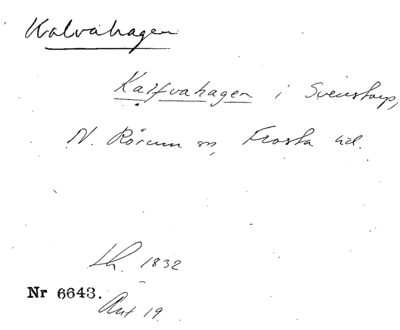 Kalvahagen
Kalfvahagen i Svenstorp,
N. Rörum sn, Frosta hd.
Lh. 1832
Nr 6643.
Akt 19